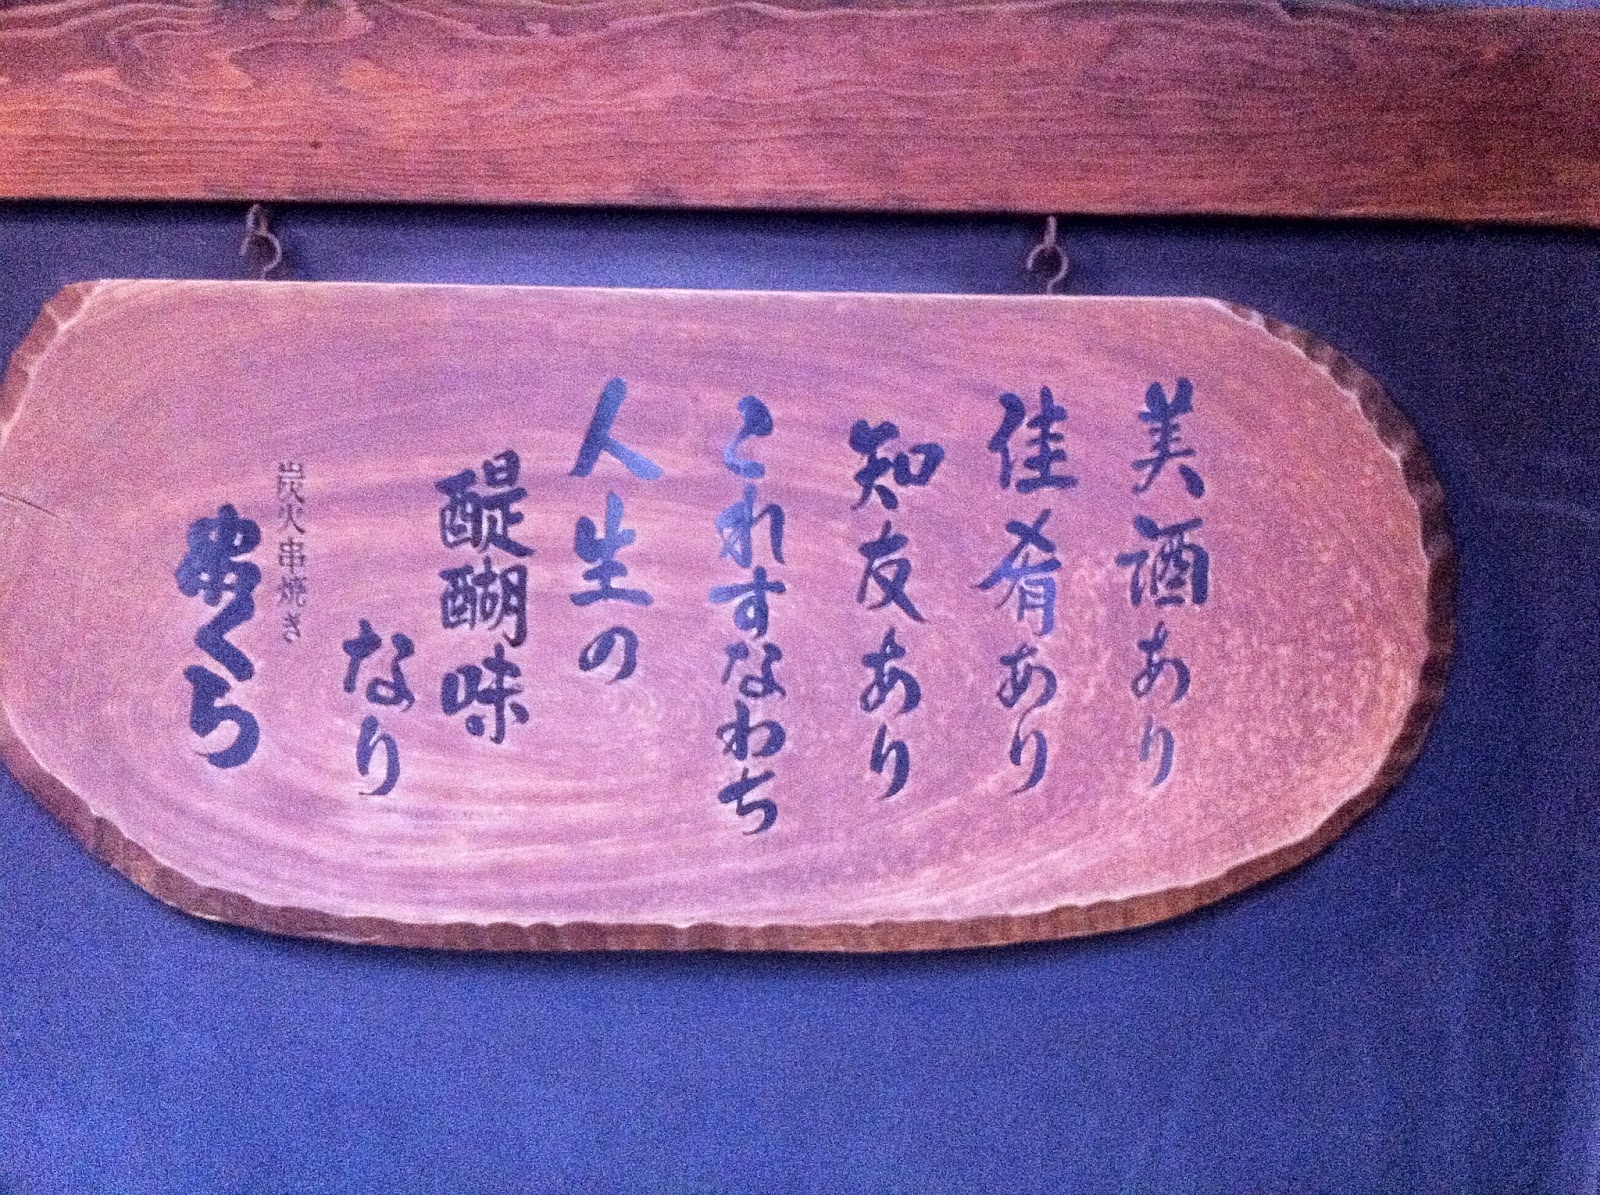 美酒あり
佳肴あり
知友あり
これすなわち
人生の
醍醐味
なり
炭火串焼き
串くら